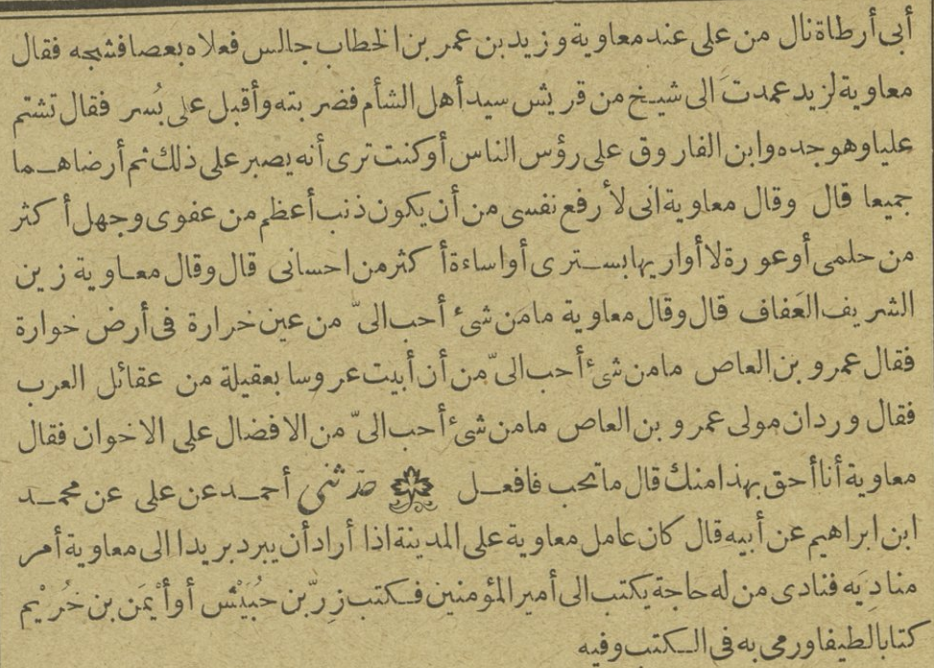 أبى أرطاة نال من على عند معاوية وزيد بن عمر بن الخطاب جالس فعلاه بعصا فشجه فقال
معاوية لزيد عمدتَ الى شيخ من قريش سيد أهل الشأم فضربته وأقبل على بُسر فقال تشتم
عليا وهو جده وابن الفاروق على رؤس الناس أو كنت ترى أنه يصبر على ذلك ثم أرضاهما
جميعا قال وقال معاوية انى لأرفع نفسى من أن يكون ذنب أعظم من عفوى وجهل أكثر
من حلمى أو عورة لا أواريها بسترى أو اساءة أكثر من احسانى قال وقال معاوية زين
الشريف العَفاف قال وقال معاوية ما من شىء أحب الىّ من عين خرارة فى أرض خوارة
فقال عمرو بن العاص ما من شىء أحب الىّ من أن أبيت عروسا بعقيلة من عقائل العرب
فقال وردان مولى عمرو بن العاص ما من شىء أحب الىّ من الافضال على الاخوان فقال
معاوية أنا أحق بهذا منك قال ما تحب فافعل حدثنى أحمد عن على عن محمد
ابن ابراهيم عن أبيه قال كان عامل معاوية على المدينة اذا أراد أن يبرد بريدا الى معاوية أمر
مناديَه فنادى من له حاجة يكتب الى أمير المؤمنين فكتب زِرّ بن حُبَيْش أو أيْمَن بن خُرَيْم
كتابا لطيفا ورمى به فى الكتب وفيه